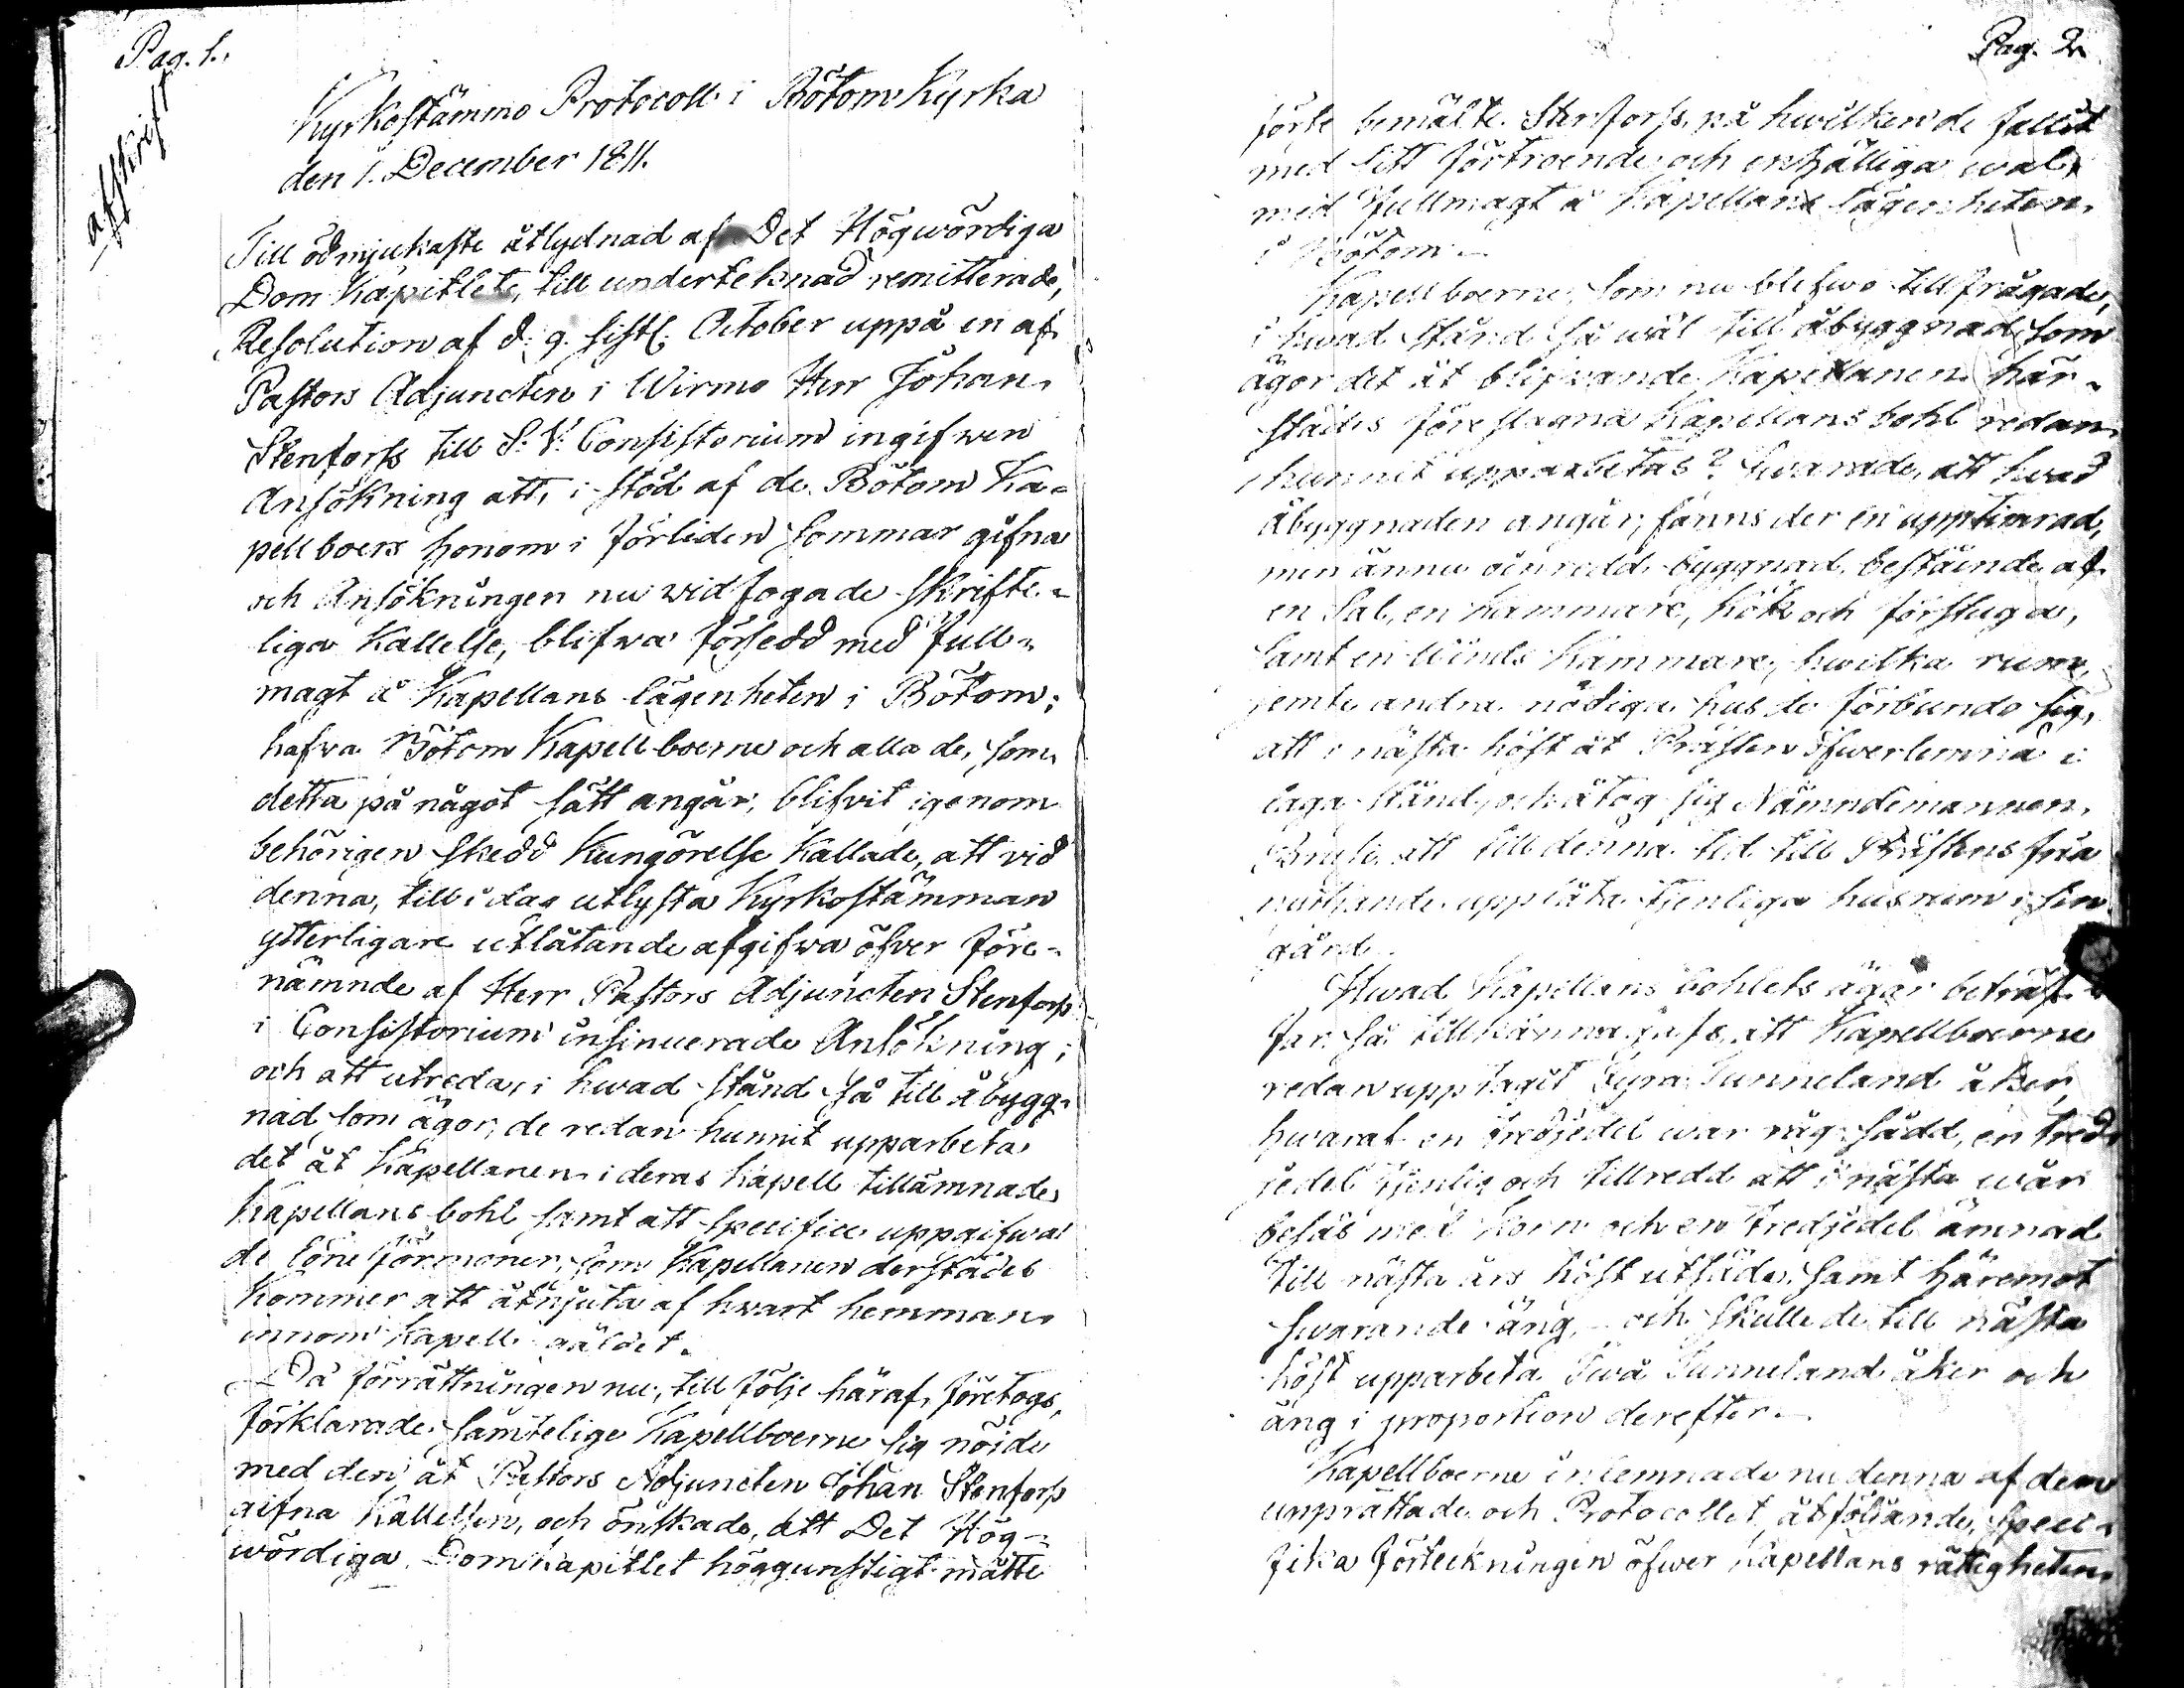 Pag. 1.
afskrift
Kyrkostämmo Protocoll i Bötom Kyrka
den 1. December 1811.
Till ödmjukaste åtlydnad af Det Högwördiga
Dom Kapitlets, till underteknad remitterade,
Resolution af d. 9. sistl. October uppå en af
Pastors Adjuncten i Wirmo Herr Johan
Stenforss till S. V. Consistorium ingifwen
Ansökning att, i stöd af de Bötom Ka=
pellboers honom i förliden Sommar gifna
och Ansökningen nu widfogade skrifte=
liga Kallelse, blifwa försedd med full=
magt å Kapellans lägenheten i Bötom;
hafva Bötom Kapellboerne och alla de, som
detta på något sätt angår, blifvit igenom
behörigen skedd Kungörelse Kallade, att vid
denna, till i dag utlysta Kyrkostämman
ytterligare utlåtande afgifwa öfver före=
nämnde af Herr Pastors Adjuncten Stenforss
i Consistorium insinuerade Ansökning;
och att utreda, i hwad stånd så till åbygg=
nad som ägor, de redan hunnit upparbeta
det åt Kapellanen i deras Kapell tillämnade
Kapellans bohl samt att specifice uppgifwa
de löne förmoner, som Kapellanen derstädes
Kommer att åtnjuta af hwart hemman
innom Kapell gäldet.
Då förrättningen nu, till följe häraf, företogs,
förklarade samtelige Kapellboerne sig nöjde
med den åt Pastors Adjuncten Johan Stenforss
gifna Kallelsen, och önskade, att Det Hög=
wördiga Domkapitlet höggunstigt måtte
Pag. 2.
förse bemälte Stenforss, på hwilken de fallit
med sitt förtroende och enhälliga wal,
med Fullmagt å Kapellans lägenheten
i Bötom.
Kapellboerne, som nu blefwo tillfrågade,
i hwad stånd så wäl till åbyggnad som
ägor det åt blifwande Kapellanen här=
städes föreslagna Kapellans bohl redan
hunnit upparbetas? swarade, att hwad
åbyggnaden angår, fanns der en upptimrad,
men ännu oinredd byggnad bestående af
en Sal, en kammare, kök och förstuga,
samt en Winds kammare, hwilka rum,
jemte andra nödiga hus de förbundo sig,
att i nästa höst åt Prästen öfwerlemna i
laga stånd, och åtog sig Nämndemannen
att till denna tid till Prästens fria
nyttjande upplåta tjenliga husrum i sin
gård.
Hwad Kapellans bohlets ägor beträf=
far, så tillkänna gafs, att Kapellboerne
redan upptagit Fyra Tunneland åker,
hwaraf en tredjedel war råg sådd, en tred=
jedel tjenlig och tillredd att i nästa wår
besås med Korn och en tredjedel ämnad
till nästa års höst utsäde, samt häremot
swarande äng, och skulle de till nästa
höst upparbeta Twå Tunneland åker och
äng i proportion derefter.
Kapellboerne inlemnade nu denna af dem
upprättade och Protocollet åtföljande, speci=
fika förteckningen öfwer Kapellans rättigheten